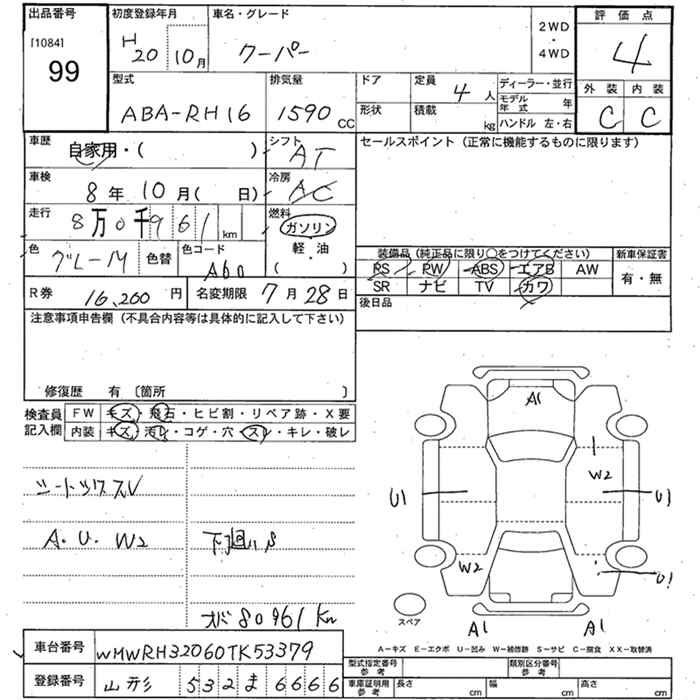 出品番号 初度登録年月 車名・グレード 評価点
[1084] 99 H20 10月 クーパー 2WD・4WD 4
型式 排気量 ドア 定員 4人 ディーラー・並行 外装 内装
ABA-RH16 1590cc 形状 積載 kg モデル年式 年 C C
ハンドル 左・右
車歴 自家用・( ) シフト AT セールスポイント（正常に機能するものに限ります）
車検 8年10月( 日) 冷房 AC
走行 8万0千961km 燃料 ガソリン
軽・油
( )
色 グレーM 色替 色コード A60 装備品（純正品に限り○をつけてください） 新車保証書
PS PW ABS エアB AW 有・無
SR ナビ TV カワ
R券 16,200円 名変期限 7月28日 後日品
注意事項申告欄（不具合内容等は具体的に記入して下さい）
修復歴 有〔箇所 〕
検査員 FW キズ・飛石・ヒビ割・リペア跡・X要
記入欄 内装 キズ・汚レ・コゲ・穴・スレ・キレ・破レ
シートツウスレV
A. U. W2 下廻りS
オド 80961Km
A1
W2
U1 U1
W2 U1
スペア
A1 A1
A-キズ E-エクボ U-凹み W-補修跡 S-サビ C-腐食 XX-取替済
車台番号 WMWRH32060TK53379
登録番号 山形 532 ま 6666
型式指定番号 参考 類別区分番号 参考
車庫証明用 参考 長さ cm 幅 cm 高さ cm